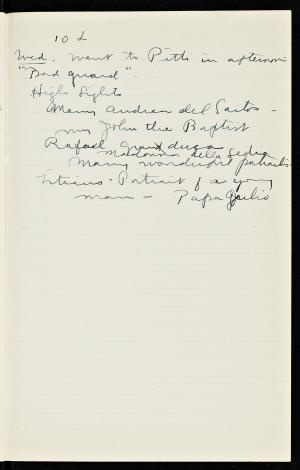 10 L
Wed. Went to Pitti in afternoon
"Bad guard".
High Lights
Many Andrea del Sartos -
my John the Baptist
Rafael Granduca
Madonna della Sedia
Many wonderful portraits
Titians - Portrait of a young
man - Papa Giulio